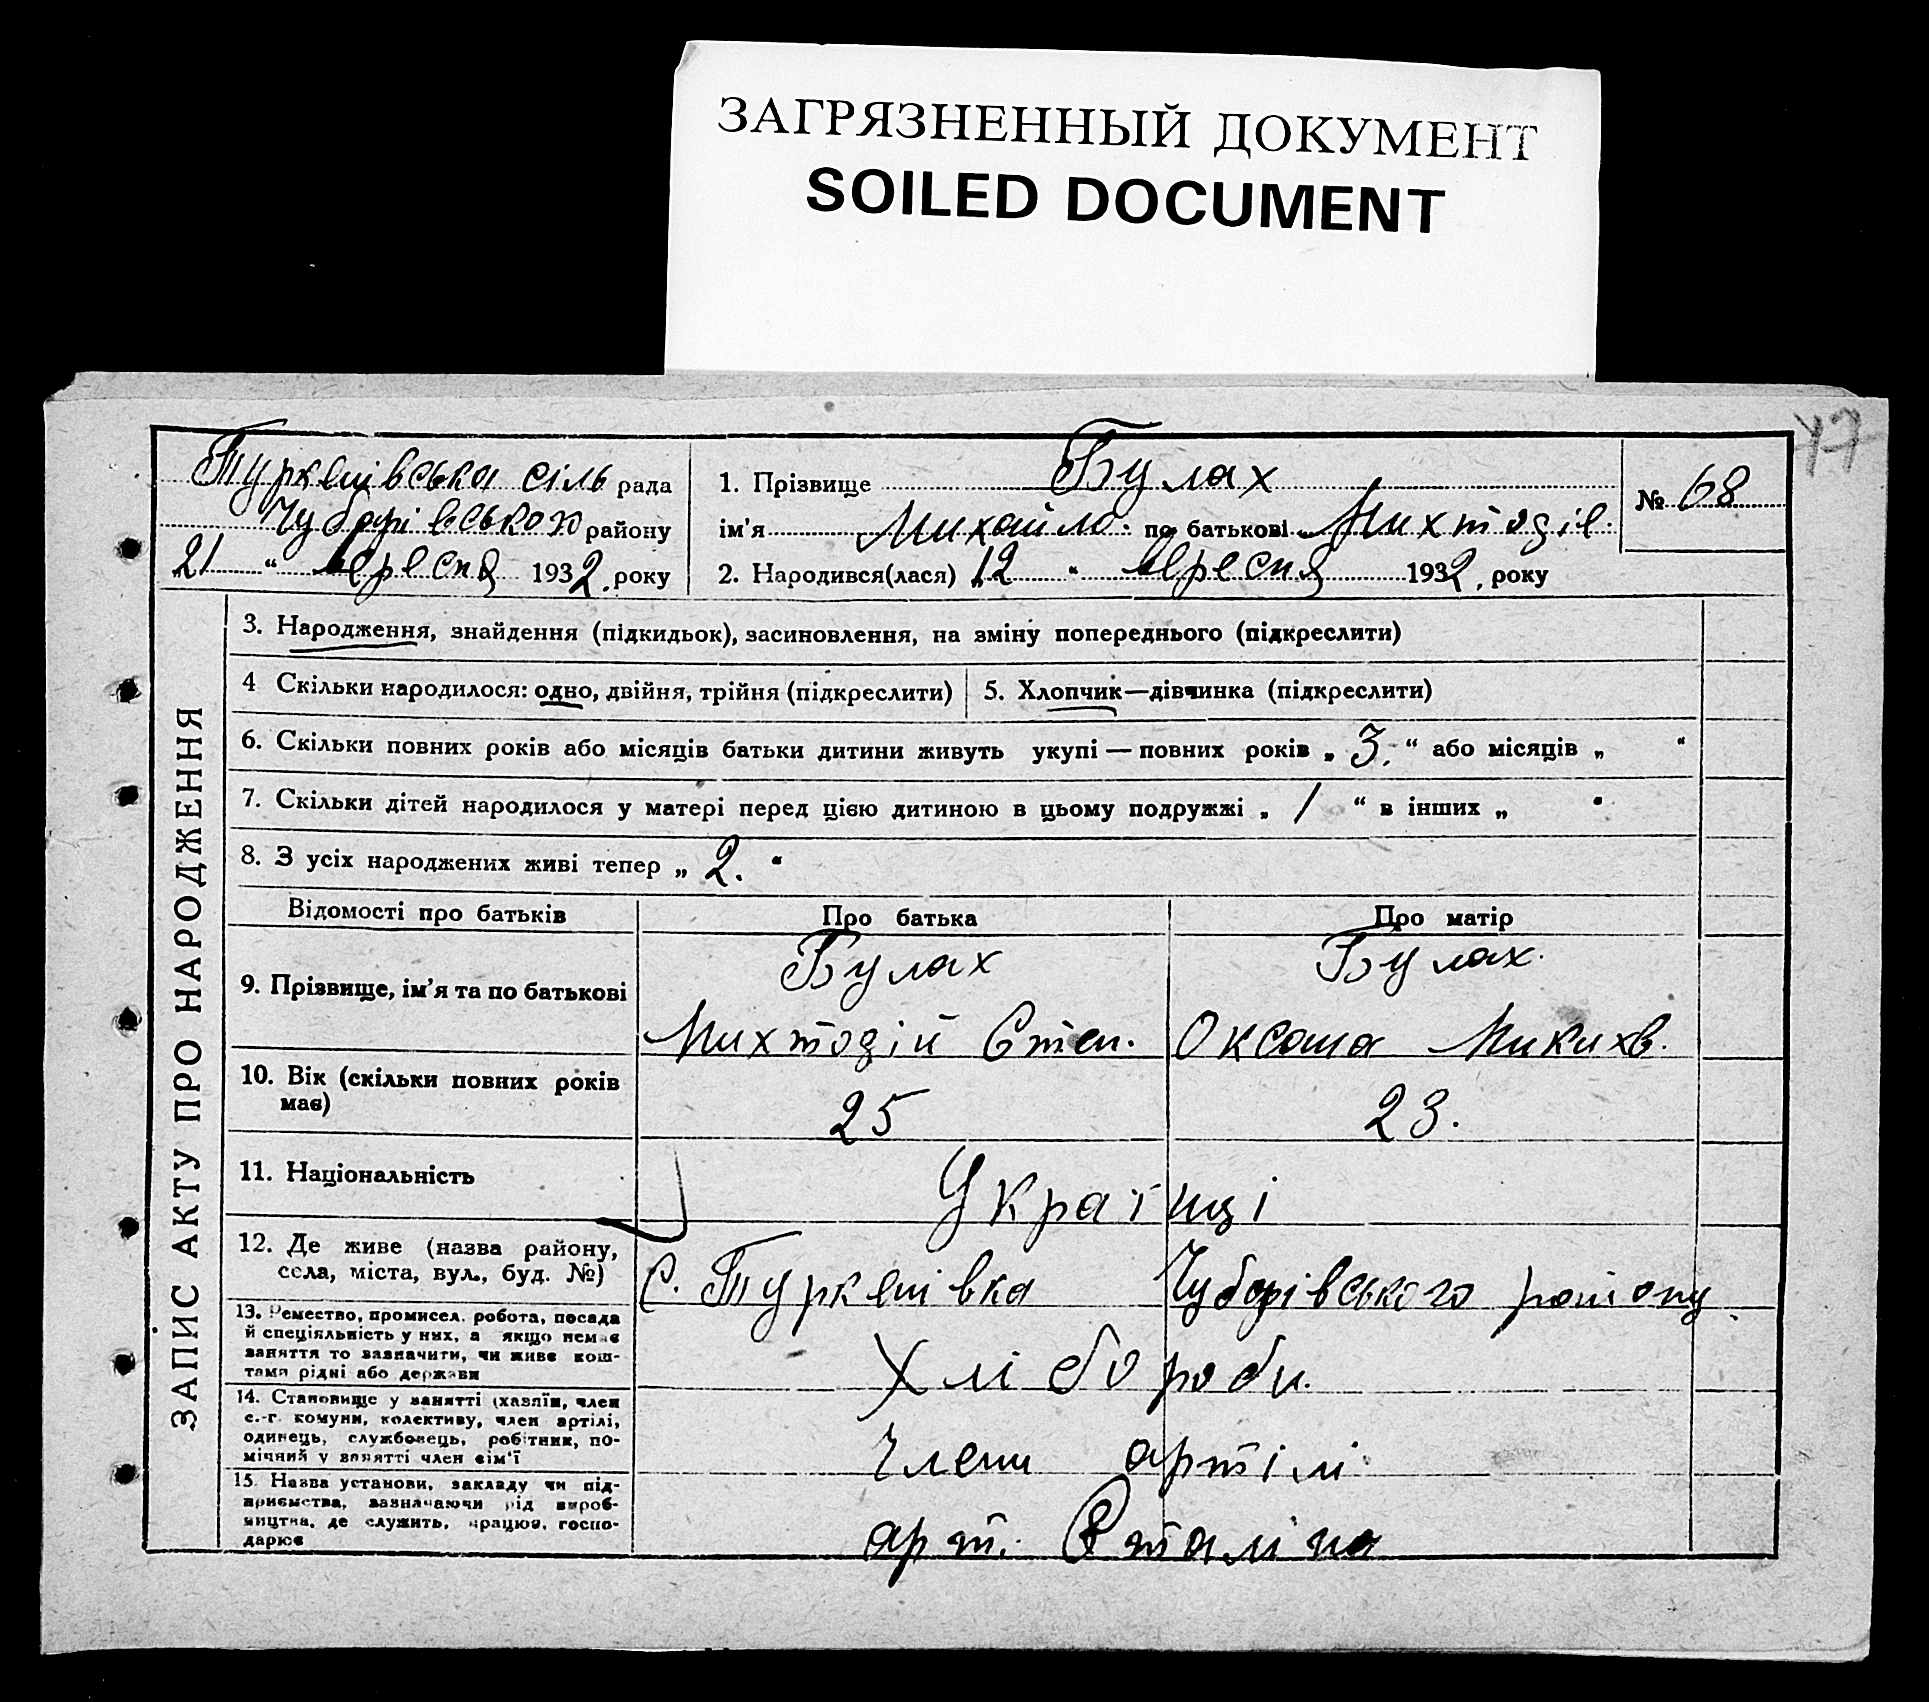 ЗАГРЯЗНЕННЫЙ ДОКУМЕНТ
SOILED DOCUMENT
47
Туркенівська сіль рада
Чубарівського району
„21 “ вересня 1932. року
1. Прізвище Булах
ім'я Михайло. по батькові Михтодів.
2. Народився(лася) „12 “ вересня 1932, року
№ 68
ЗАПИС АКТУ ПРО НАРОДЖЕННЯ
3. Народження, знайдення (підкидьок), засиновлення, на зміну попереднього (підкреслити)
4 Скільки народилося: одно, двійня, трійня (підкреслити)
5. Хлопчик—дівчинка (підкреслити)
6. Скільки повних років або місяців батьки дитини живуть укупі — повних років „ 3. “ або місяців „ “
7. Скільки дітей народилося у матері перед цією дитиною в цьому подружжі „ 1 “ в інших „ “
8. З усіх народжених живі тепер „ 2. “
Відомості про батьків
Про батька
Про матір
9. Прізвище, ім'я та по батькові
Булах
Михтодій Степ.
Булах.
Оксана
10. Вік (скільки повних років
має)
25
23.
11. Національність
Українці
12. Де живе (назва району,
села, міста, вул., буд. №)
С. Туркенівка Чубарівського району
13. Ремество, промисел, робота, посада
й спеціяльність у них, а якщо немає
заняття то зазначити, чи живе кош-
тами рідні або держави
Хлібороби.
14. Становище у занятті (хазяїн, член
с.-г. комуни, колективу, член артілі,
одинець, службовець, робітник, по-
мічний у занятті член сім'ї
Члени артілі
15. Назва установи, закладу чи під-
приємства, зазначаючи рід вироб-
ництва, де служить, працює, госпо-
дарює
арт. Сталіна